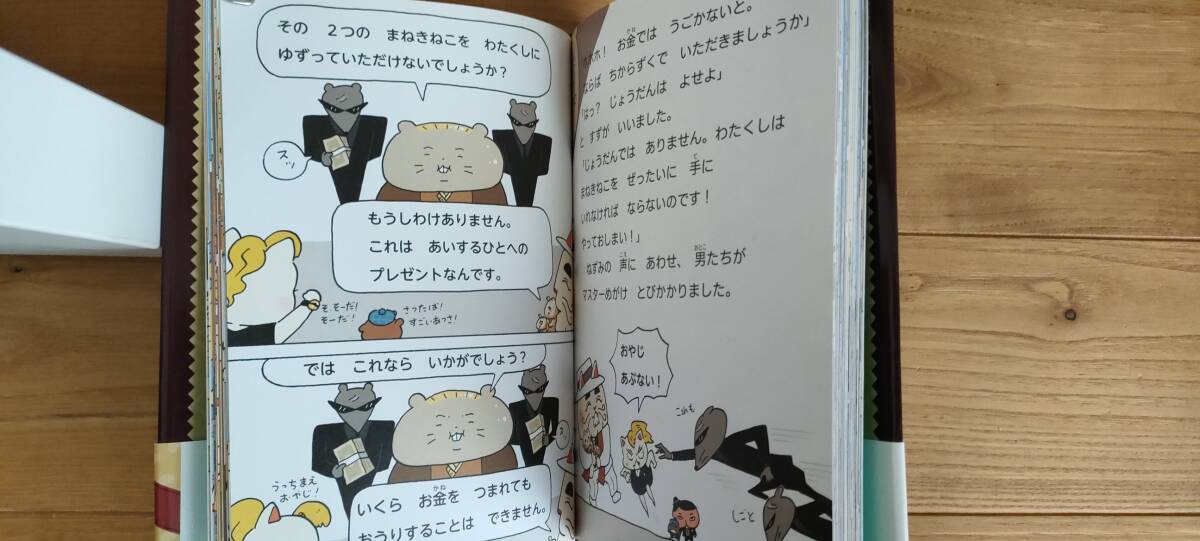 その ２つの まねきねこを わたくしに
ゆずっていただけないでしょうか？
スッ
もうしわけありません。
これは あいするひとへの
プレゼントなんです。
そ、そーだ！
そーだ！
さったば！
すごいあつさ！
では これなら いかがでしょう？
うっちまえ
おやじ！
いくら お金を つまれても
おうりすることは できません。
ホホ！ お金では うごかないと。
ならば ちからずくで いただきましょうか」
「はっ？ じょうだんは よせよ」
と すずが いいました。
「じょうだんでは ありません。わたくしは
まねきねこを ぜったいに 手に
いれなければ ならないのです！
やっておしまい！」
ねずみの 声に あわせ、男たちが
マスターめがけ とびかかりました。
おやじ
あぶない！
これも
しごと